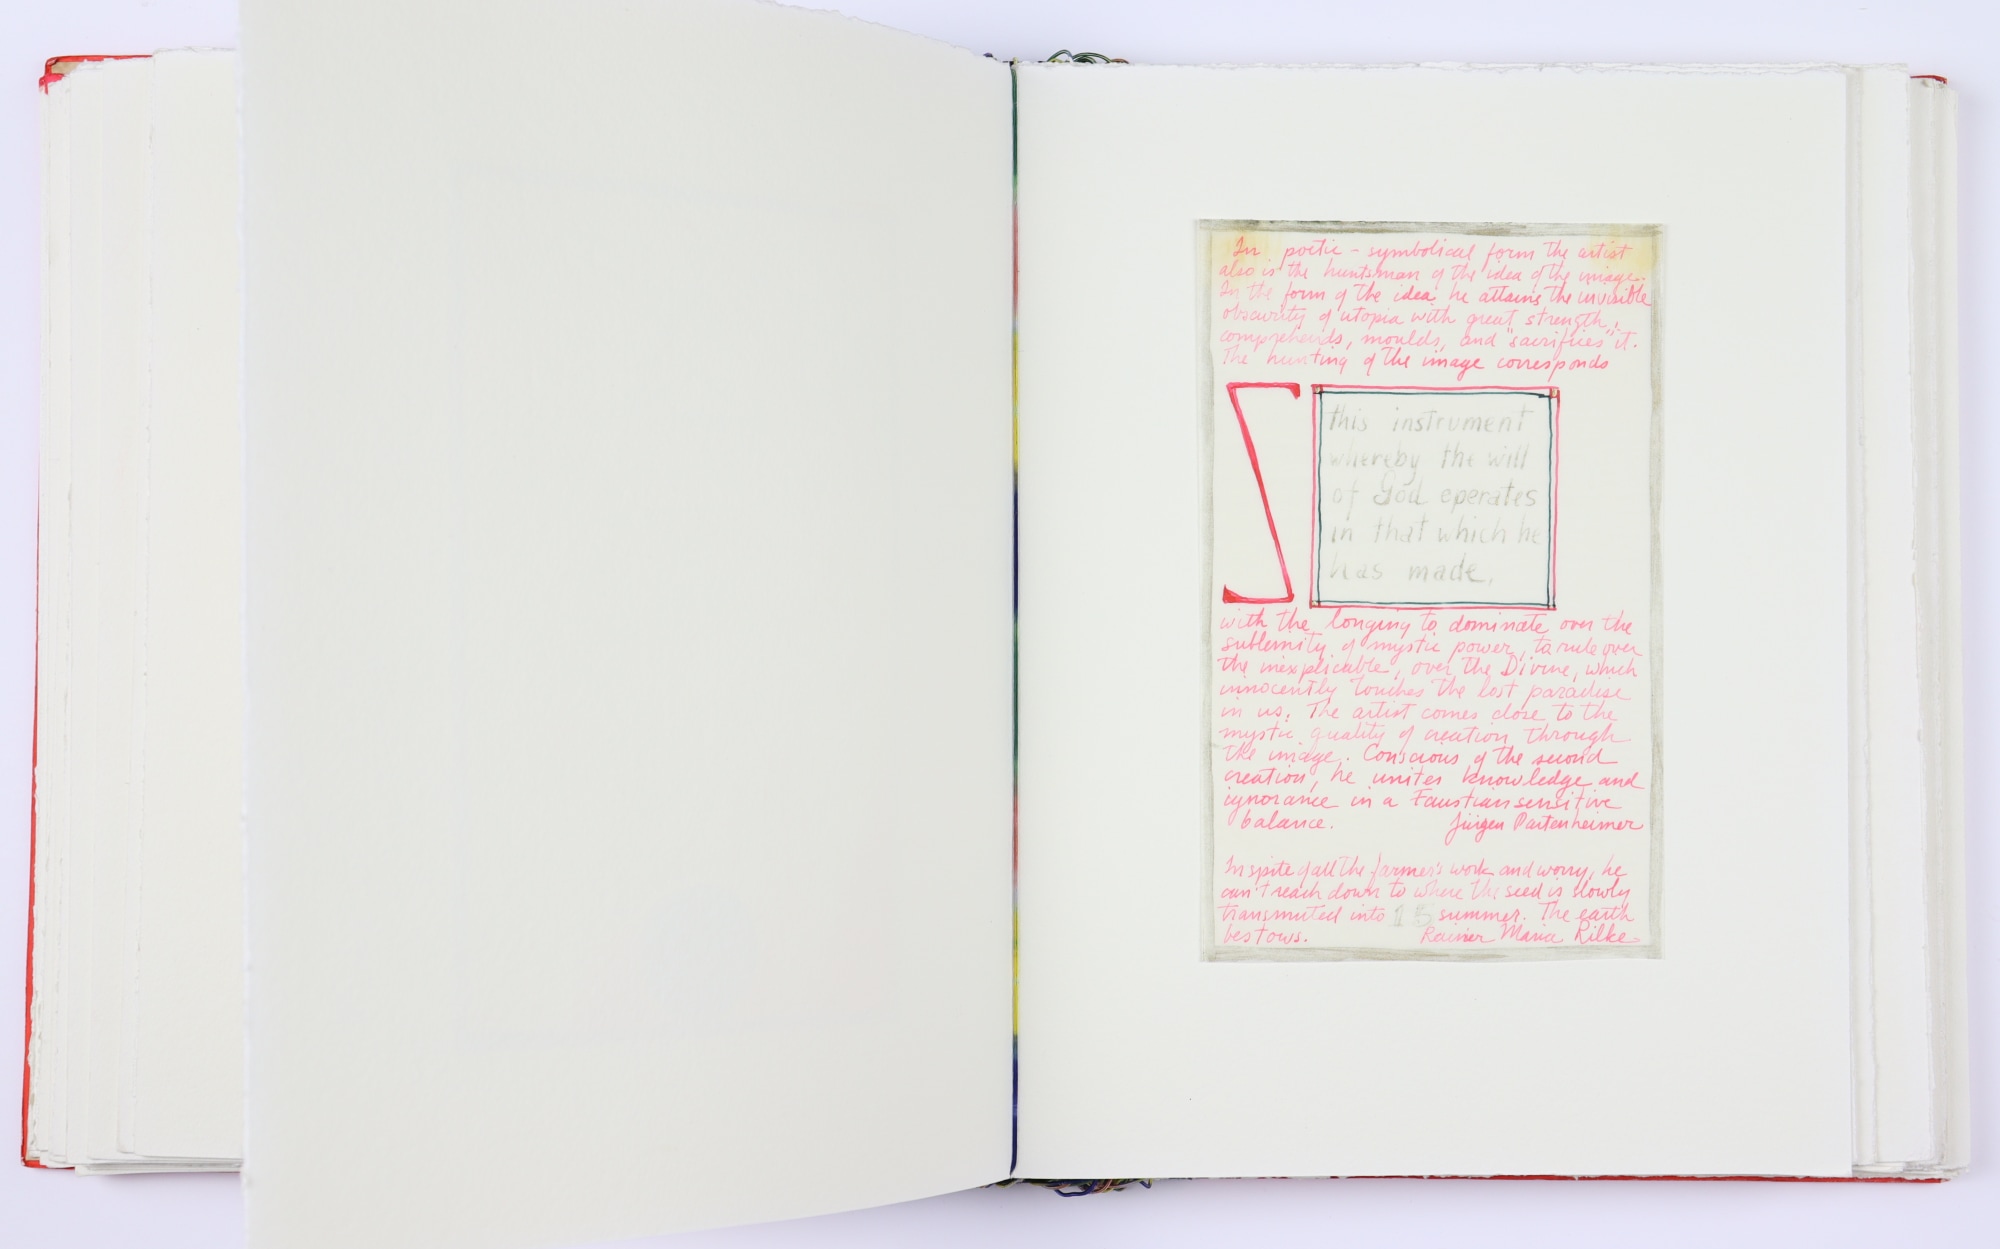 In poetic - symbolical form the artist
also is the huntsman of the idea of the image.
In the form of the idea he attains the invisible
obscurity of utopia with great strength,
comprehends, moulds, and "sacrifices" it.
The hunting of the image corresponds
this instrument
whereby the will
of God operates
in that which he
has made,
with the longing to dominate over the
sublimity of mystic power, to rule over
the inexplicable, over the Divine, which
innocently touches the lost paradise
in us. The artist comes close to the
mystic quality of creation through
the image. Conscious of the second
creation, he unites knowledge and
ignorance in a Faustian sensitive
balance. Jürgen Partenheimer
In spite of all the farmer's work and worry, he
can't reach down to where the seed is slowly
transmuted into 15 summer. The earth
bestows. Rainer Maria Rilke